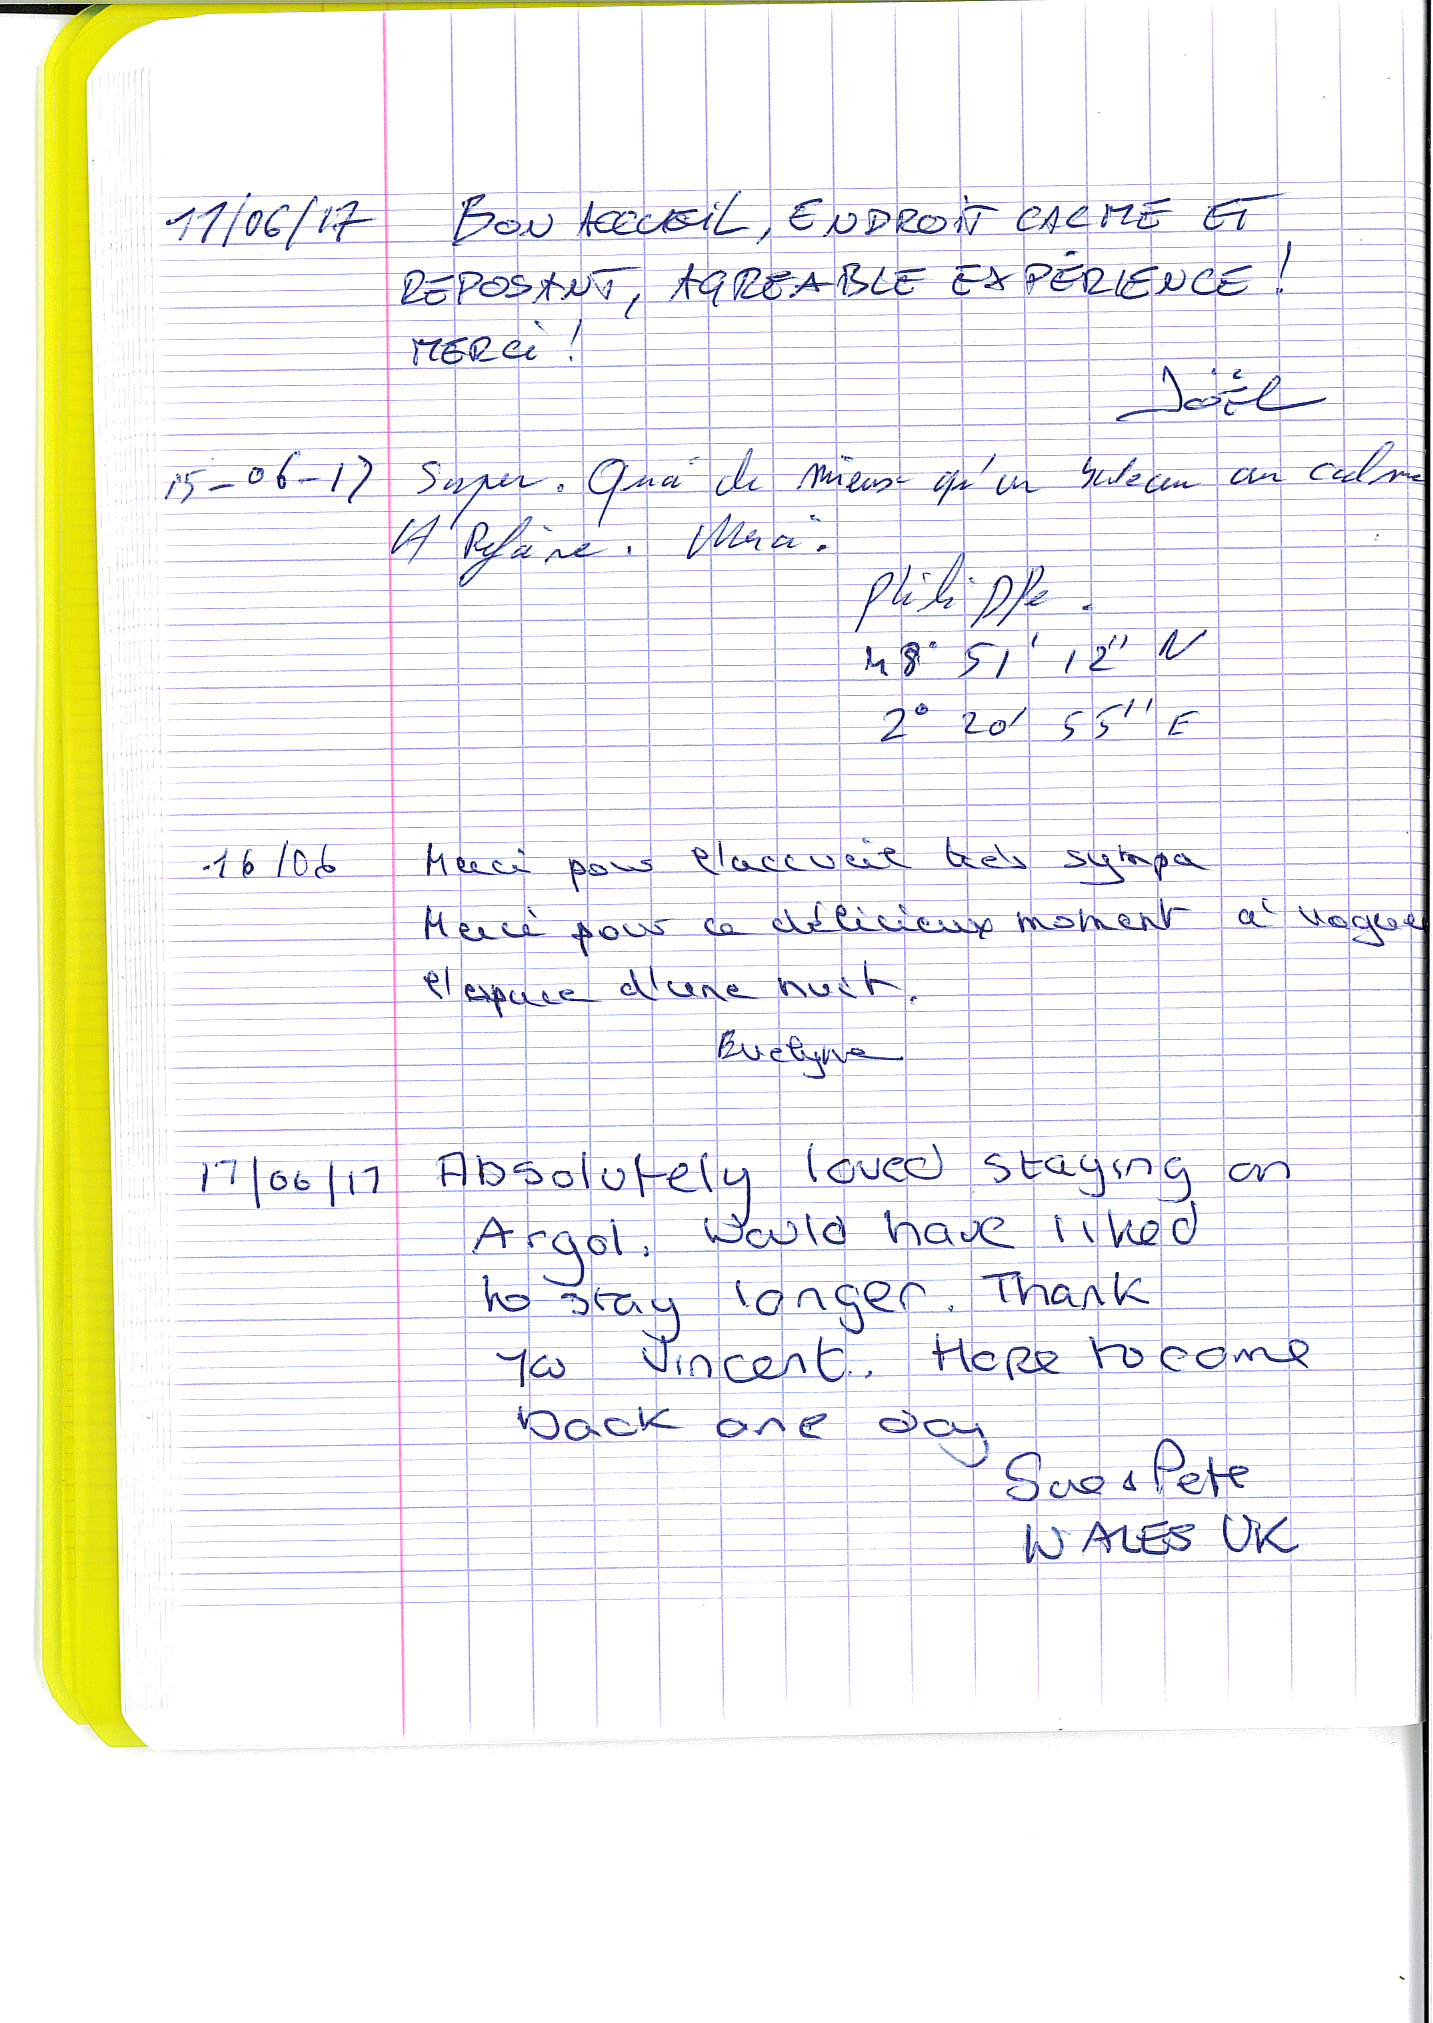 11/06/17 BON ACCUEIL, ENDROIT CALME ET
REPOSANT, AGREABLE EXPÉRIENCE !
MERCI !
Joël
15-06-17 Super. Quoi de mieux qu'un bateau au calme
A Refaire. Merci.
Philippe.
48° 51' 12'' N
2° 20' 55'' E
16/06 Merci pour l'accueil très sympa
Merci pour ce délicieux moment à voguer
l'espace d'une nuit.
Evelyne
17/06/17 Absolutely loved staying on
Argol. Would have liked
to stay longer. Thank
you Vincent. Hope to come
back one day
Sue & Pete
WALES UK